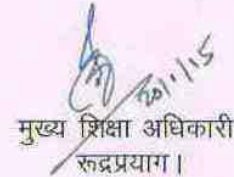 20/1/15
मुख्य शिक्षा अधिकारी
रूद्रप्रयाग।